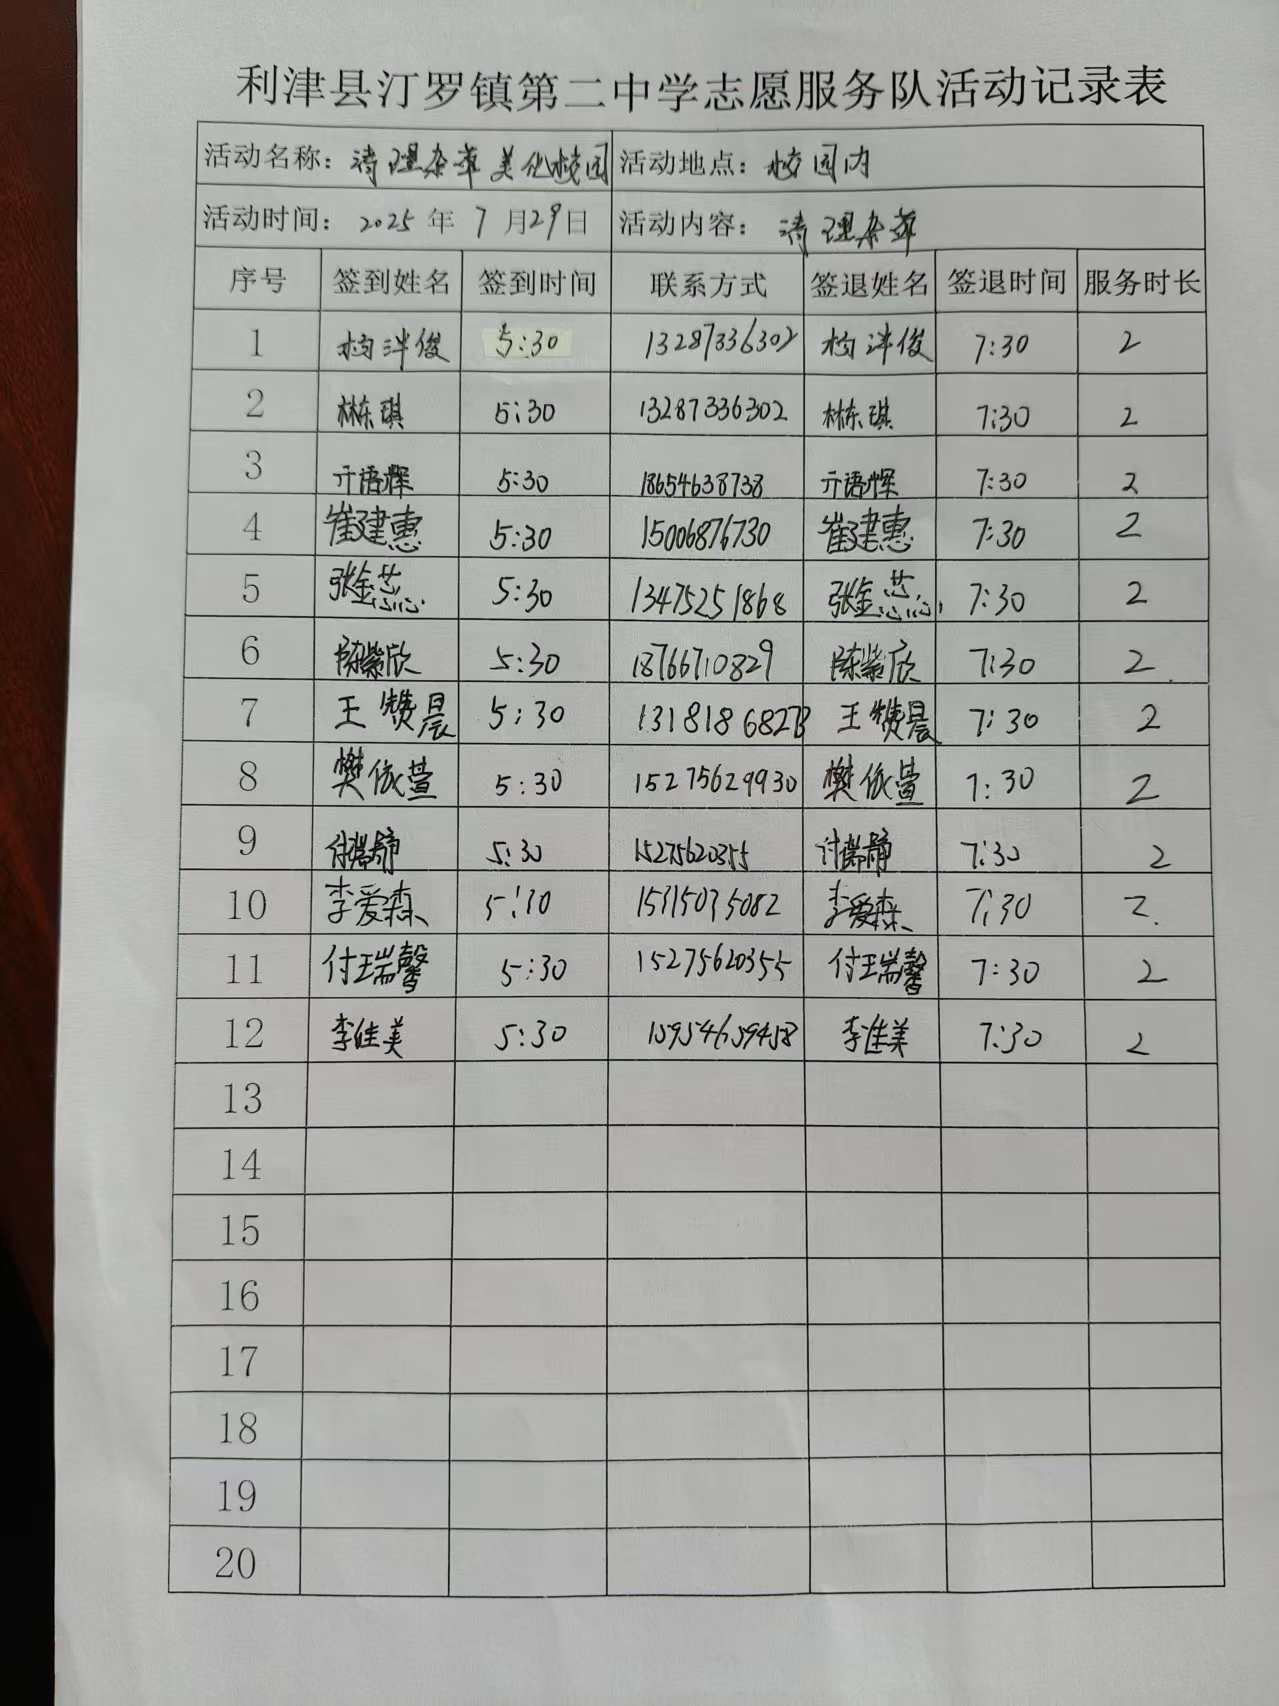 利津县汀罗镇第二中学志愿服务队活动记录表
活动名称：清理杂草美化校园 活动地点：校园内
活动时间：2025年7月29日 活动内容：清理杂草
序号 签到姓名 签到时间 联系方式 签退姓名 签退时间 服务时长
1 5:30 13287336302 7:30 2
2 林东琪 5:30 13287336302 林东琪 7:30 2
3 亓语辉 5:30 18654638738 亓语辉 7:30 2
4 崔建惠 5:30 15006876730 崔建惠 7:30 2
5 张金蕊 5:30 13475251868 张金蕊 7:30 2
6 陈紫欣 5:30 18766710829 陈紫欣 7:30 2
7 王赞晨 5:30 王赞晨 7:30 2
8 樊依萱 5:30 15275629930 樊依萱 7:30 2
9 付瑞静 5:30 15275620355 付瑞静 7:30 2
10 李爱森 5:30 15315035082 李爱森 7:30 2
11 付瑞馨 5:30 15275620355 付瑞馨 7:30 2
12 李佳美 5:30 15954659458 李佳美 7:30 2
13
14
15
16
17
18
19
20